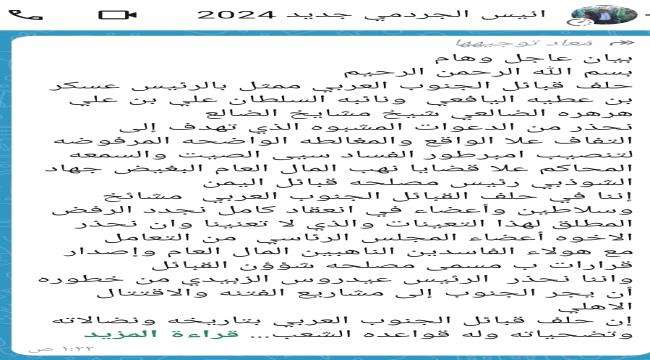 انيس الجردمي جديد 2024
مُعاد توجيهها
بيان عاجل وهام
بسم الله الرحمن الرحيم
حلف قبائل الجنوب العربي ممثل بالرئيس عسكر
بن عطيه اليافعي ونائبه السلطان علي بن علي
هرهره الضالعي شيخ مشايخ الضالع
نحذر من الدعوات المشبوه الذي تهدف إلى
التفاف علا الواقع والمغالطه الواضحه المرفوضه
لتنصيب امبرطور الفساد سيى الصيت والسمعه
المحاكم علا قضايا نهب المال العام البغيض جهاد
الشوذبي رئيس مصلحه قبائل اليمن
إننا في حلف القبائل الجنوب العربي مشائخ
وسلاطين وأعضاء في انعقاد كامل نجدد الرفض
المطلق لهذا التعينات والذي لا تعنينا وان نحذر
الاخوه أعضاء المجلس الرئاسي من التعامل
مع هولاء الفاسدين الناهبين المال العام وإصدار
قرارات ب مسمى مصلحه شؤون القبائل
واننا نحذر الرئيس عيدروس الزبيدي من خطوره
أن يجر الجنوب إلى مشاريع الفتنه والاقتتال
الاهلي
إن حلف قبائل الجنوب العربي بتاريخه ونضالاته
وتضحياته وله قواعده الشعب... قراءة المزيد
١:٢٢ ص